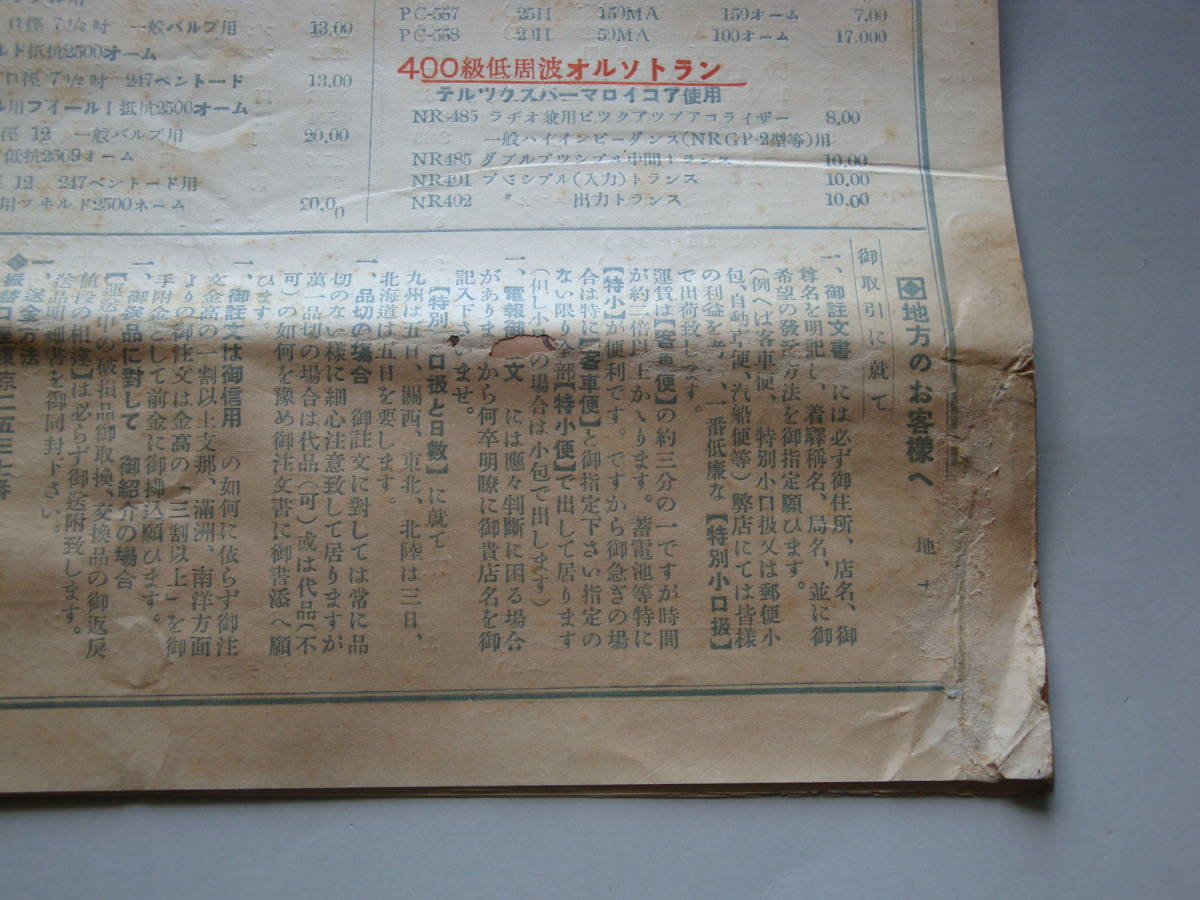 口徑 7 1/2 吋 一般バルブ用 13.00
ルド抵抗2500オーム
口徑 7 1/2 吋 247ペントード 13.00
ル用フイールド抵抗2500オーム
徑 12 一般バルブ用 20.00
抵抗2509オーム
徑 12 247ペントード用
用フキルド2500ネーム 20.00
PC-557 25H 150MA 150オーム 7.00
PC-558 20H 50MA 100オーム 17.000
400級低周波オルソトラン
テルツクスパーマロイコア使用
NR-485 ラヂオ兼用ピツクアツプアコライザー 8,00
一般ハイインピーダンス(NRGP-2型等)用
NR485 ダブルプツシプル中間トランス 10.00
NR401 プツシプル(入力)トランス 10.00
NR402 〃 出力トランス 10.00
◆地方のお客様へ
御取引に就て
一、御註文書 には必ず御住所、店名、御
尊名を明記し、着驛稱名、局名、並に御
希望の發送方法を御指定願ひます。
(例へば客車便、特別小口扱又は郵便小
包、自動車便、汽船便等)弊店にては皆様
の利益を考へ、一番低廉な【特別小口扱】
で出荷致します。
運賃は【客車便】の約三分の一ですが時間
が約二倍以上かゝります。蓄電池等特に
【特小】が便利です。ですから御急ぎの場
合は特に【客車便】と御指定下さい指定の
ない限り全部【特小便】で出して居ります
(但し小口の場合は小包で出します)
一、電報御註文 には應々判斷に困る場合
がありますから何卒明瞭に御貴店名を御
記入下さいませ。
【特別小口扱と日數】に就て
九州は五日、關西、東北、北陸は三日、
北海道は五日を要します。
一、品切の場合 御註文に對しては常に品
切のない樣に細心注意致して居りますが
萬一品切の場合は代品(可)或は代品(不
可)の如何を豫め御注文書に御書添へ願
ひます
一、御註文は御信用 の如何に依らず御注
文金高の一割以上支那、滿洲、南洋方面
よりの御注文は金高の「三割以上」を御
手附金として前金に御拂込願ひます。
一、御送品に對して 御紹介の場合
【運送中の破損品御取換、交換品の御返戻
値段の相違】は必らず御送附致します。
送品明細書を御同封下さい。
一、送金方法
◆振替口座東京二五